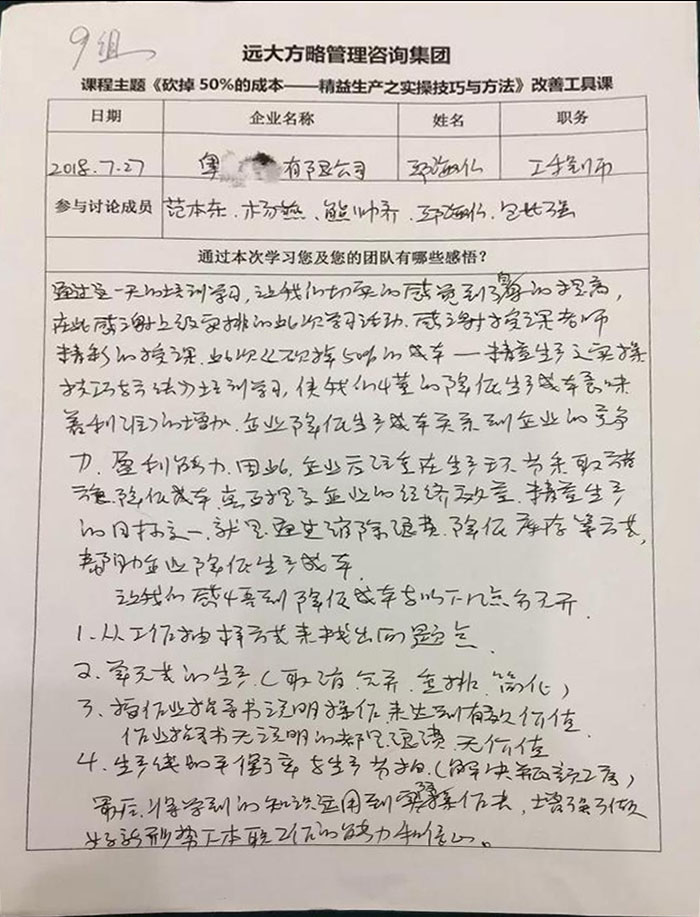 9组
远大方略管理咨询集团
课程主题《砍掉50%的成本——精益生产之实操技巧与方法》改善工具课
日期 企业名称 姓名 职务
2018.7.27 奥 有限公司 邓海仏 工程师
参与讨论成员 范本东、杨燕、熊帅奇、邓海仏、包长强
通过本次学习您及您的团队有哪些感悟?
通过这一天的培训学习,让我们切实的感觉到了的提高,
在此感谢上级安排的此次学习活动.感谢授课老师
精彩的授课.此次《砍掉50%的成本—精益生产之实操
技巧与方法》培训学习,使我们懂的降低生产成本意味
着利润的增加.企业降低生产成本关系到企业的竞争
力、盈利能力.因此,企业应注重在生产环节采取措
施,降低成本,真正提高企业的经济效益.精益生产
的目标之一,就是通过缩除浪费、降低库存等方式,
帮助企业降低生产成本.
让我们感悟到降低成本与以下几点分不开.
1.从工作抽样方式来找出问题点.
2.单元式的生产.(取消、合并、重排、简化)
3.按作业指导书说明操作来达到有效价值.
作业指导书无说明的都是浪费、无价值
4.生产线的平衡率与生产节拍.(解决瓶颈工序)
最后,将学到的知识运用到实际操作去,增强了做
好新形势下本职工作的能力和信心。